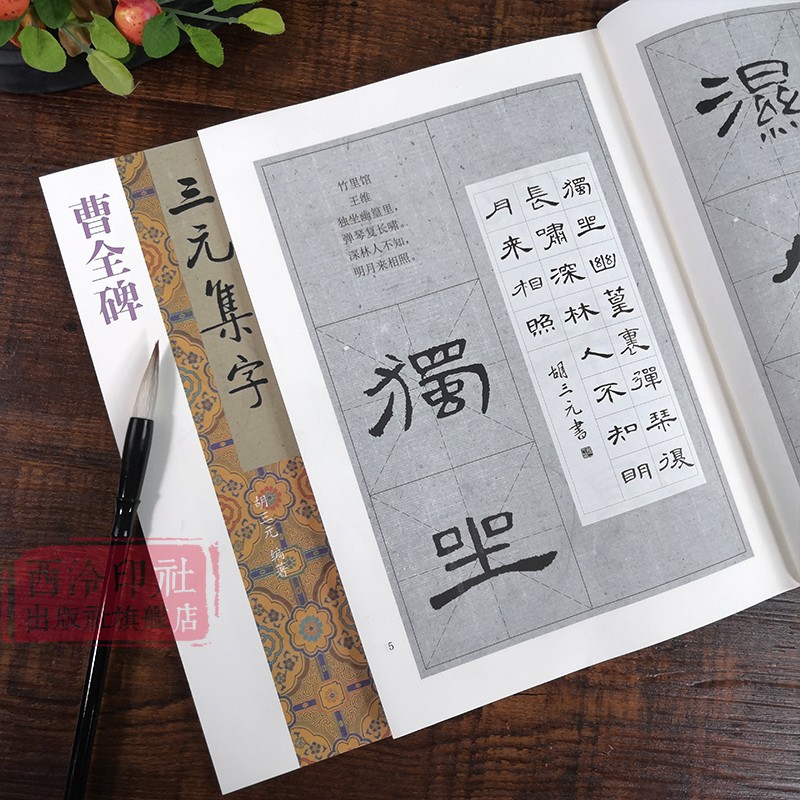 曹全碑
三元集字
胡三元 编著
竹里馆
王维
独坐幽篁里，
弹琴复长啸。
深林人不知，
明月来相照。
獨坐幽篁裏彈琴復
長嘯深林人不知明
月来相照
胡三元書
獨
坐
5
濕
西泠印社
出版社旗舰店